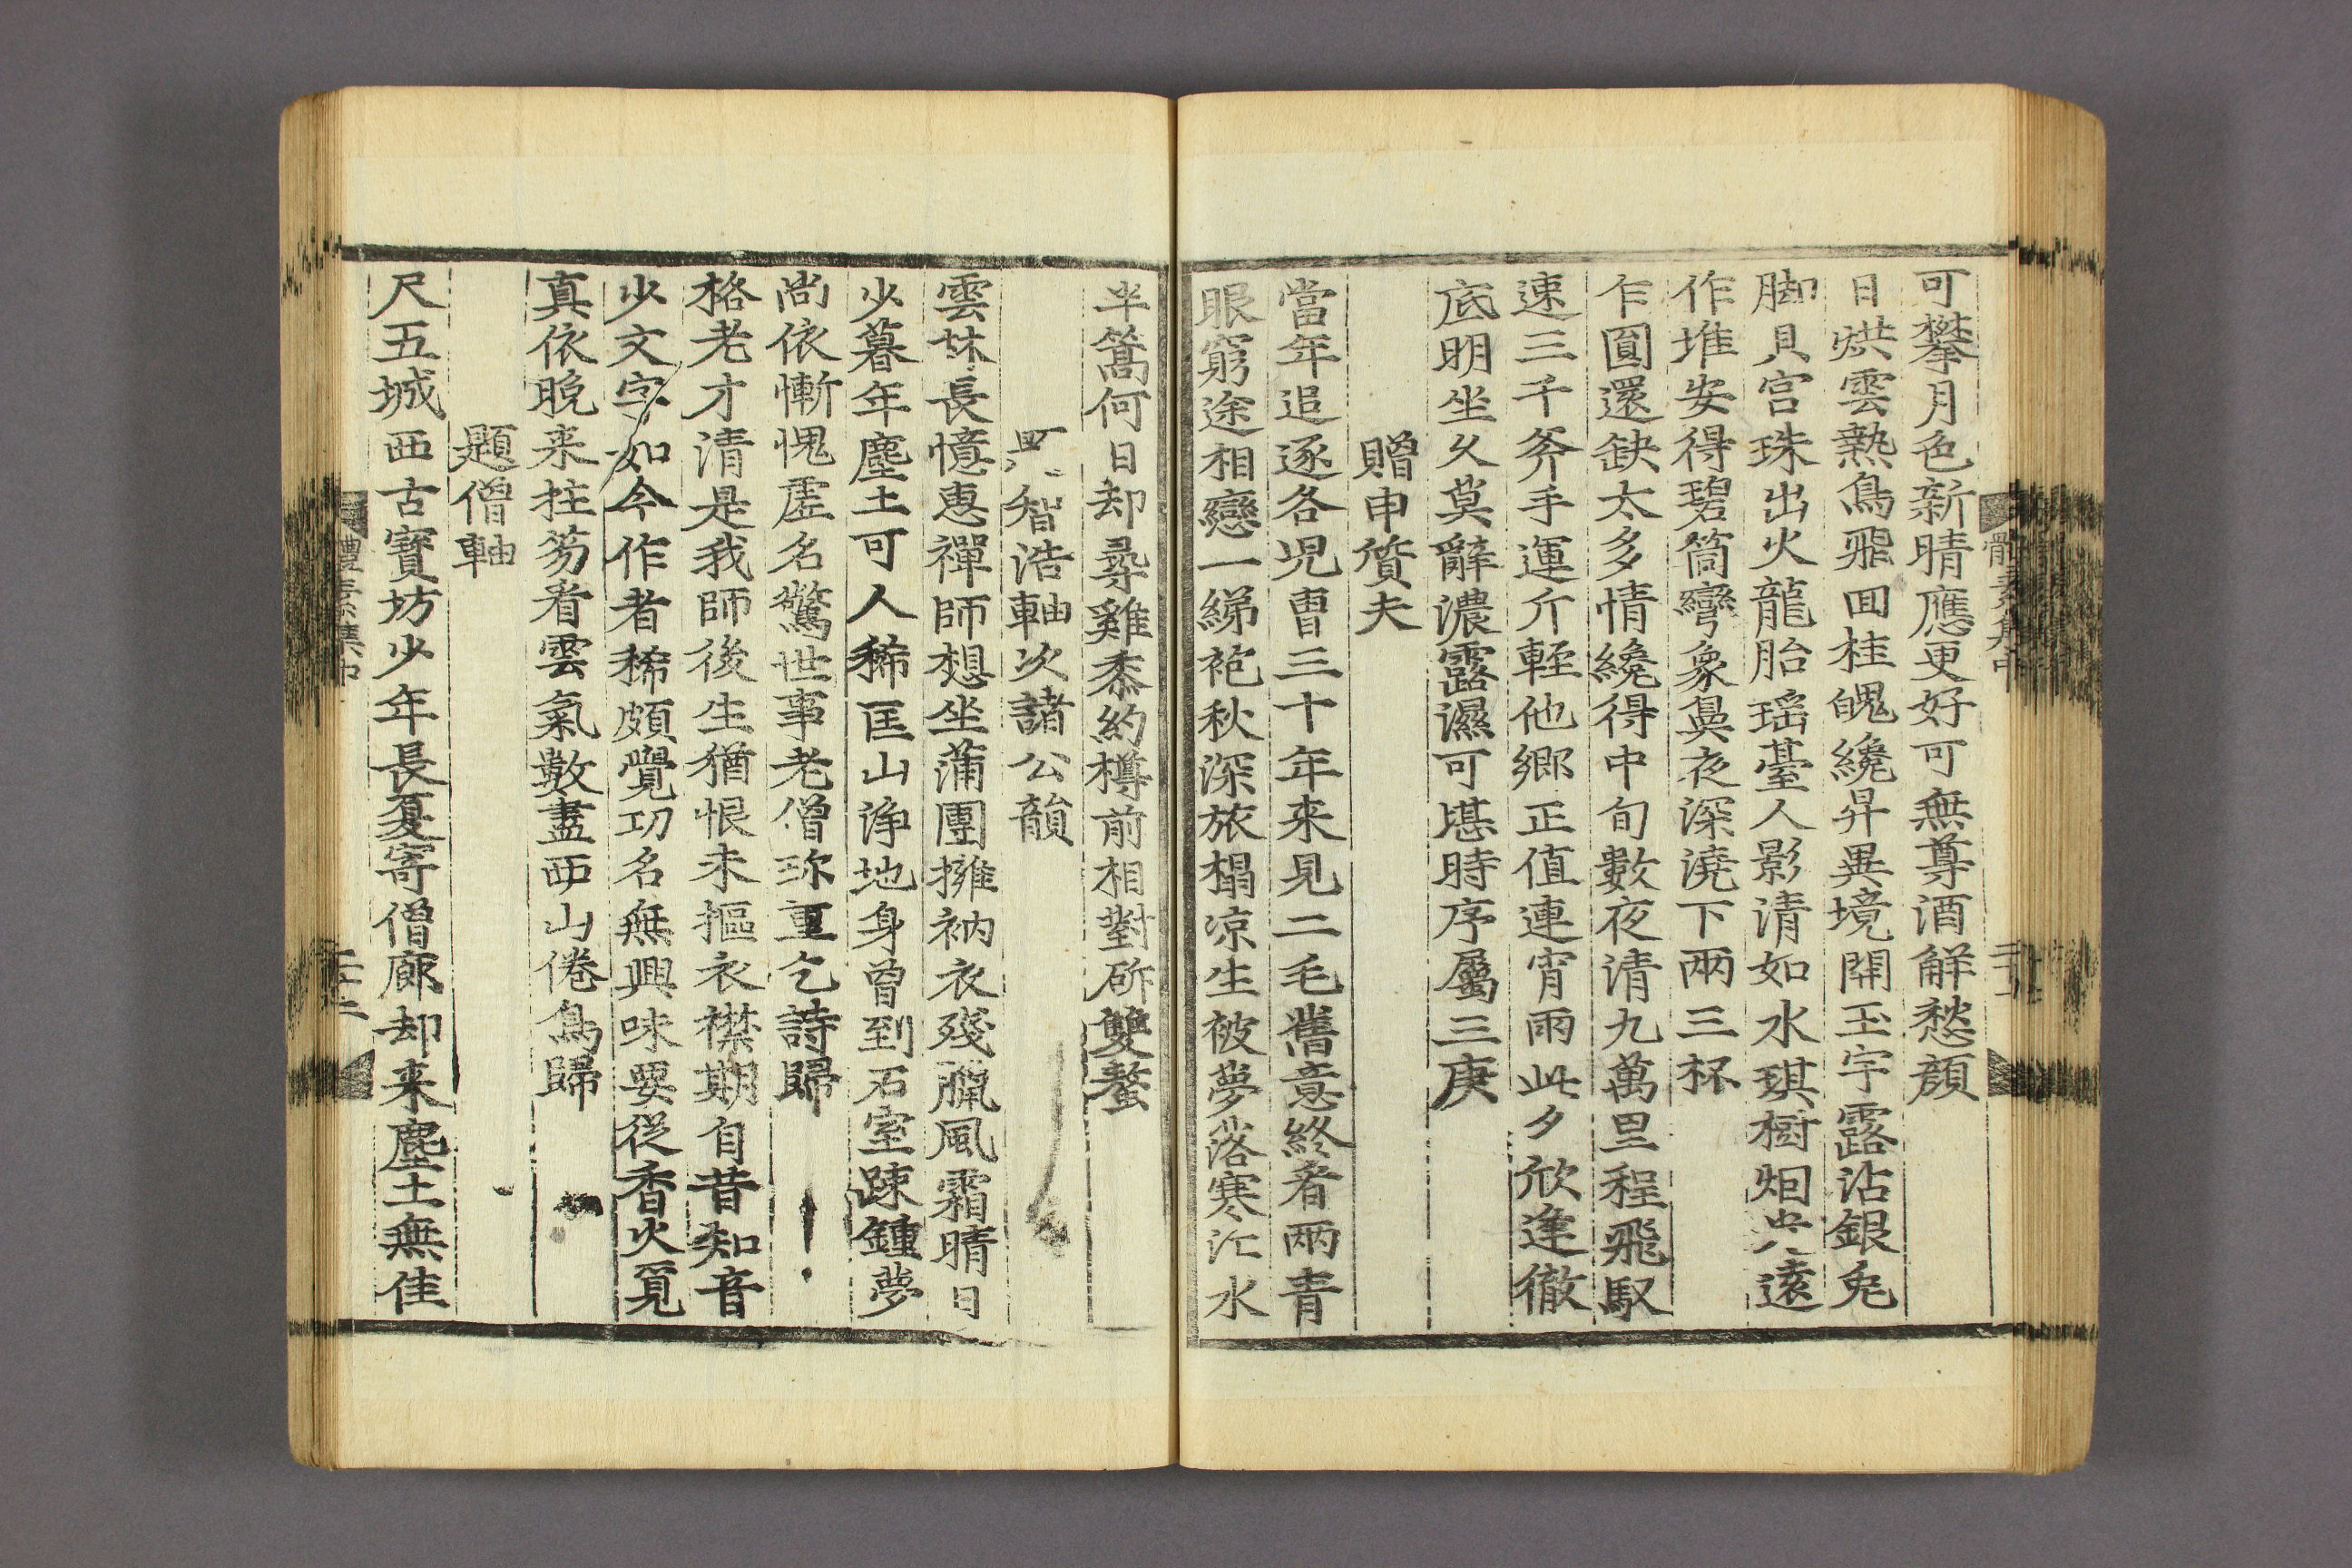 可攀月色新晴應更好可無尊酒解愁顔
日烘雲熱鳥飛回桂魄纔昇異境開玉宇露沾銀兔
脚貝宮珠出火龍胎瑶臺人影清如水琪樹烟光遠
作堆安得碧筒彎象鼻夜深澆下兩三杯
乍圓還缺太多情纔得中旬數夜清九萬里程飛馭
速三千斧手運斤輕他鄉正值連宵雨此夕欣逢徹
底明坐久莫辭濃露濕可堪時序屬三庚
贈申質夫
當年追逐各児曹三十年来見二毛舊意終看兩青
眼窮途相戀一綈袍秋深旅榻凉生被夢落寒江水
半篙何日却尋雞黍約樽前相對斫雙螯
智浩軸次諸公韻
雲林長憶惠禪師想坐蒲團擁衲衣殘臘風霜晴日
少暮年塵土可人稀匡山淨地身曾到石室踈鍾夢
尚依慚愧虛名驚世事老僧珎重乞詩歸
格老才清是我師後生猶恨未摳衣襟期自昔知音
少文字如今作者稀頗覺功名無興味要從香火覓
真依晚来拄笏看雲氣數盡西山倦鳥歸
題僧軸
尺五城西古寳坊少年長夏寄僧廊却来塵土無佳
體素集中